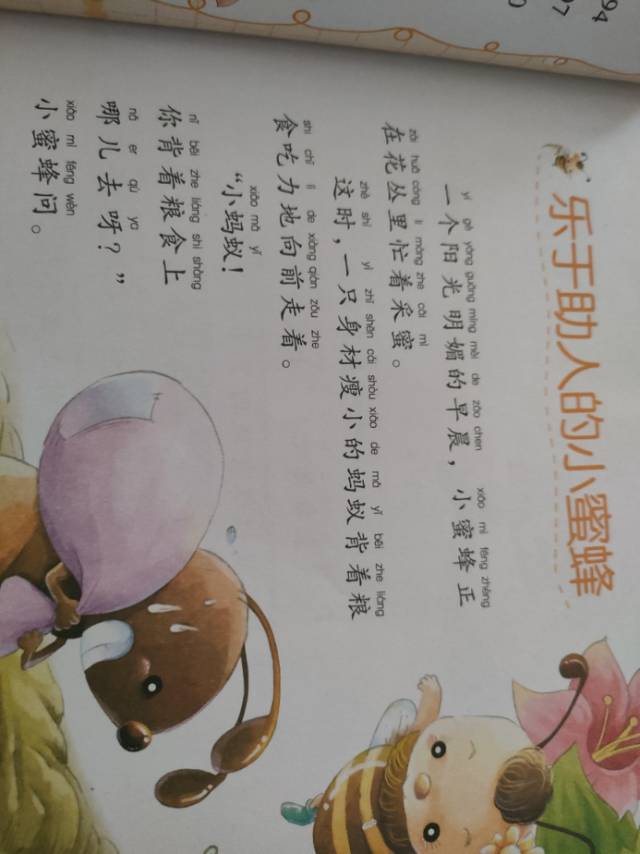 乐于助人的小蜜蜂
yí gè yáng guāng míng mèi de zǎo chen xiǎo mì fēng zhèng
一个阳光明媚的早晨，小蜜蜂正
zài huā cóng lǐ máng zhe cǎi mì
在花丛里忙着采蜜。
zhè shí yì zhī shēn cái shòu xiǎo de mǎ yǐ bēi zhe liáng
这时，一只身材瘦小的蚂蚁背着粮
shi chī lì de xiàng qián zǒu zhe
食吃力地向前走着。
xiǎo mǎ yǐ
“小蚂蚁！
nǐ bēi zhe liáng shi shàng
你背着粮食上
nǎ er qù ya
哪儿去呀？”
xiǎo mì fēng wèn
小蜜蜂问。